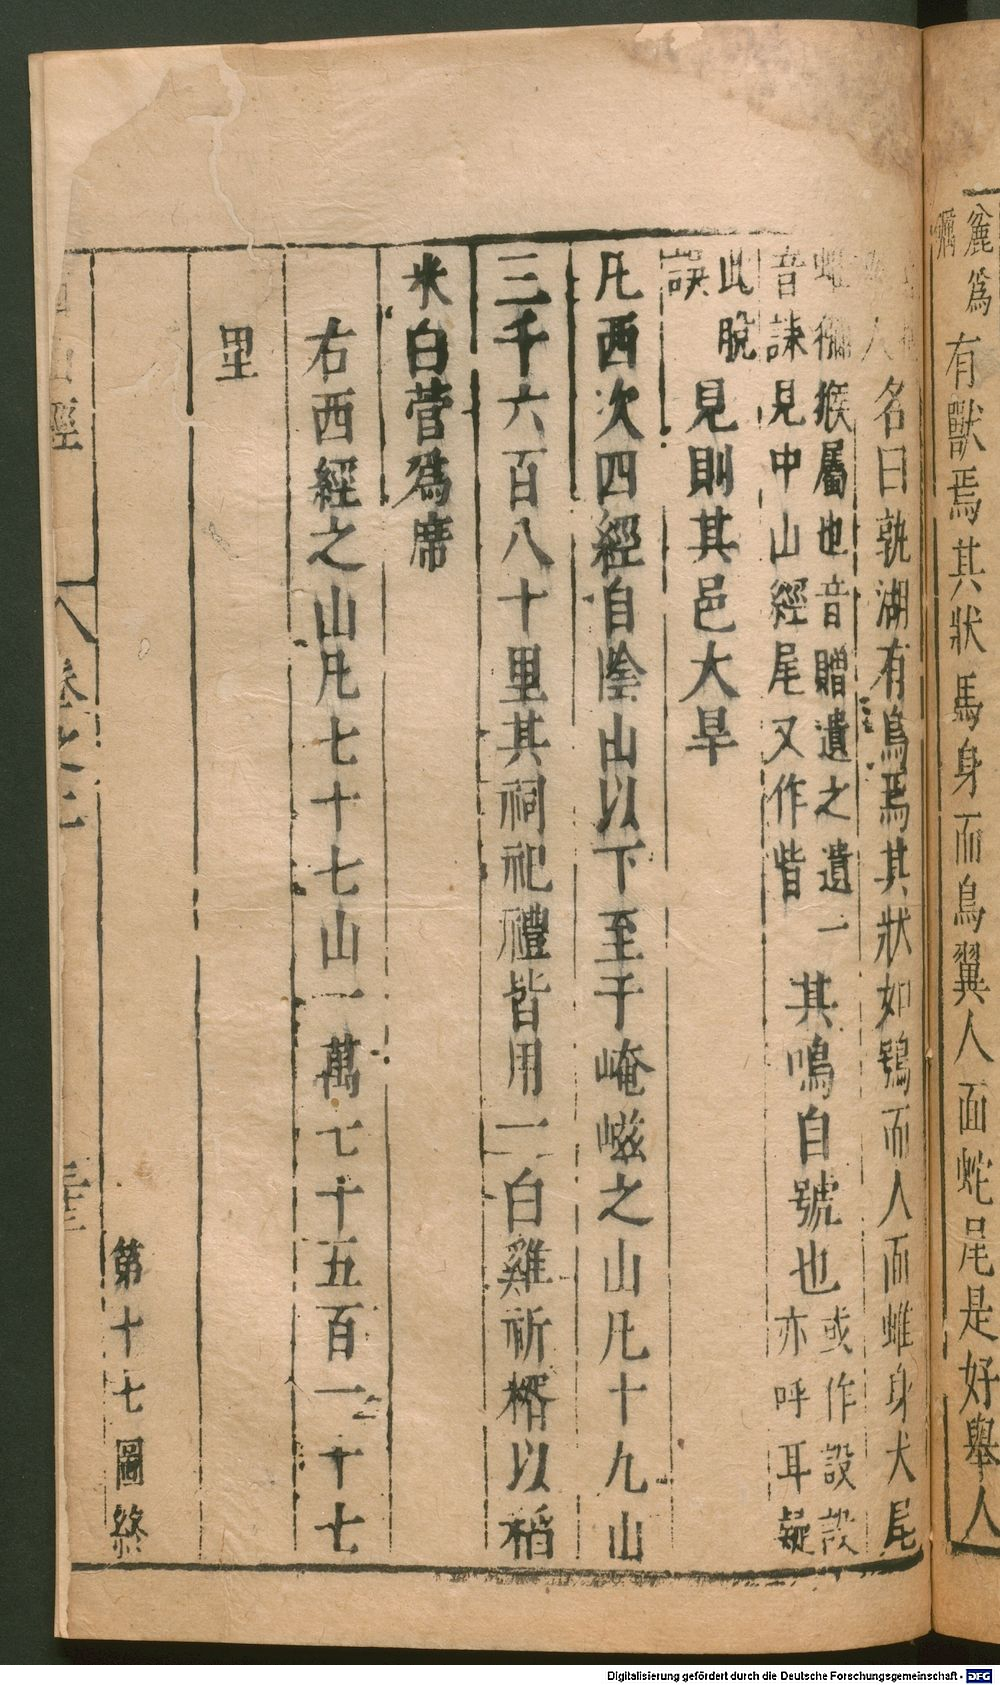 麄爲
有獸焉其狀馬身而鳥翼人面蛇尾是好舉人
人名曰孰湖有鳥焉其狀如鴞而人面蜼身犬尾
蜼獼猴屬也音贈遺之遺一
音誄見中山經尾又作眥
其鳴自號也
或作設設
亦呼耳疑
此脫
誤
見則其邑大旱
凡西次四經自陰山以下至于崦嵫之山凡十九山
三千六百八十里其祠祀禮皆用一白雞祈糈以稻
米白菅爲席
右西經之山凡七十七山一萬七千五百一十七
里
第十七圖終
山經
卷之二
Digitalisierung gefördert durch die Deutsche Forschungsgemeinschaft - DFG